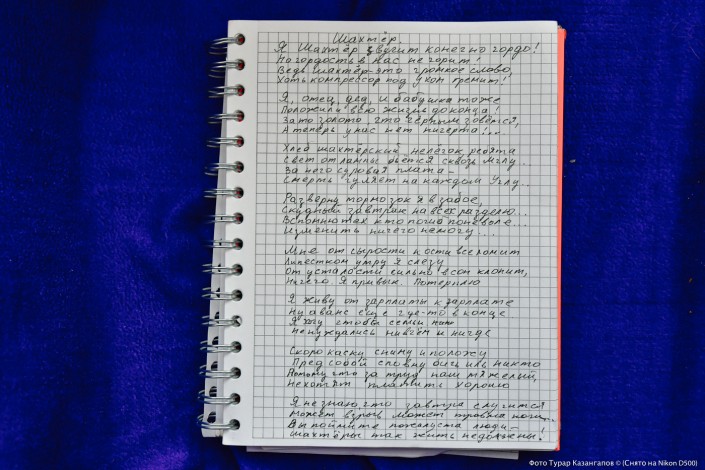 Шахтёр.
Я Шахтёр звучит конечно гордо!
Но гордость в нас не горит!
Ведь шахтёр-это громкое слово,
Хоть компрессор под ухом гремит!
Я, отец, дед, и бабушка тоже
Положили всю жизнь до конца!
За то золото, что чёрным зовётся,
А теперь у нас нет ничерта!..
Хлеб шахтёрский нелёгок, ребята
Свет от лампы бьётся сквозь мглу..
За него суровая плата-
Смерть гуляет на каждом углу..
Разверну тормозок я в забое,
Скудный завтрак на всех разделю...
Вспомню тех кто погиб поневоле...
Изменить ничего немогу.
Мне от сырости кости все ломит
утру я слезу
От усталости сильно в сон клонит,
Ничего. Я привык. Потерплю
Я живу от зарплаты к зарплате
Ну аванс еще где-то в конце
Я хочу чтобы семьи
ненуждались нивчем и нигде
Скоро каску сниму и положу
Пред собой
Потому что за труд наш тяжёлый,
Нехотят платить хорошо
Я незнаю, что завтра случится
Может взрыв может травма
Вы поймите пожалуста люди-
Шахтёры так жить недолжены!
Фото Турар Казангапов © (Снято на Nikon D500)